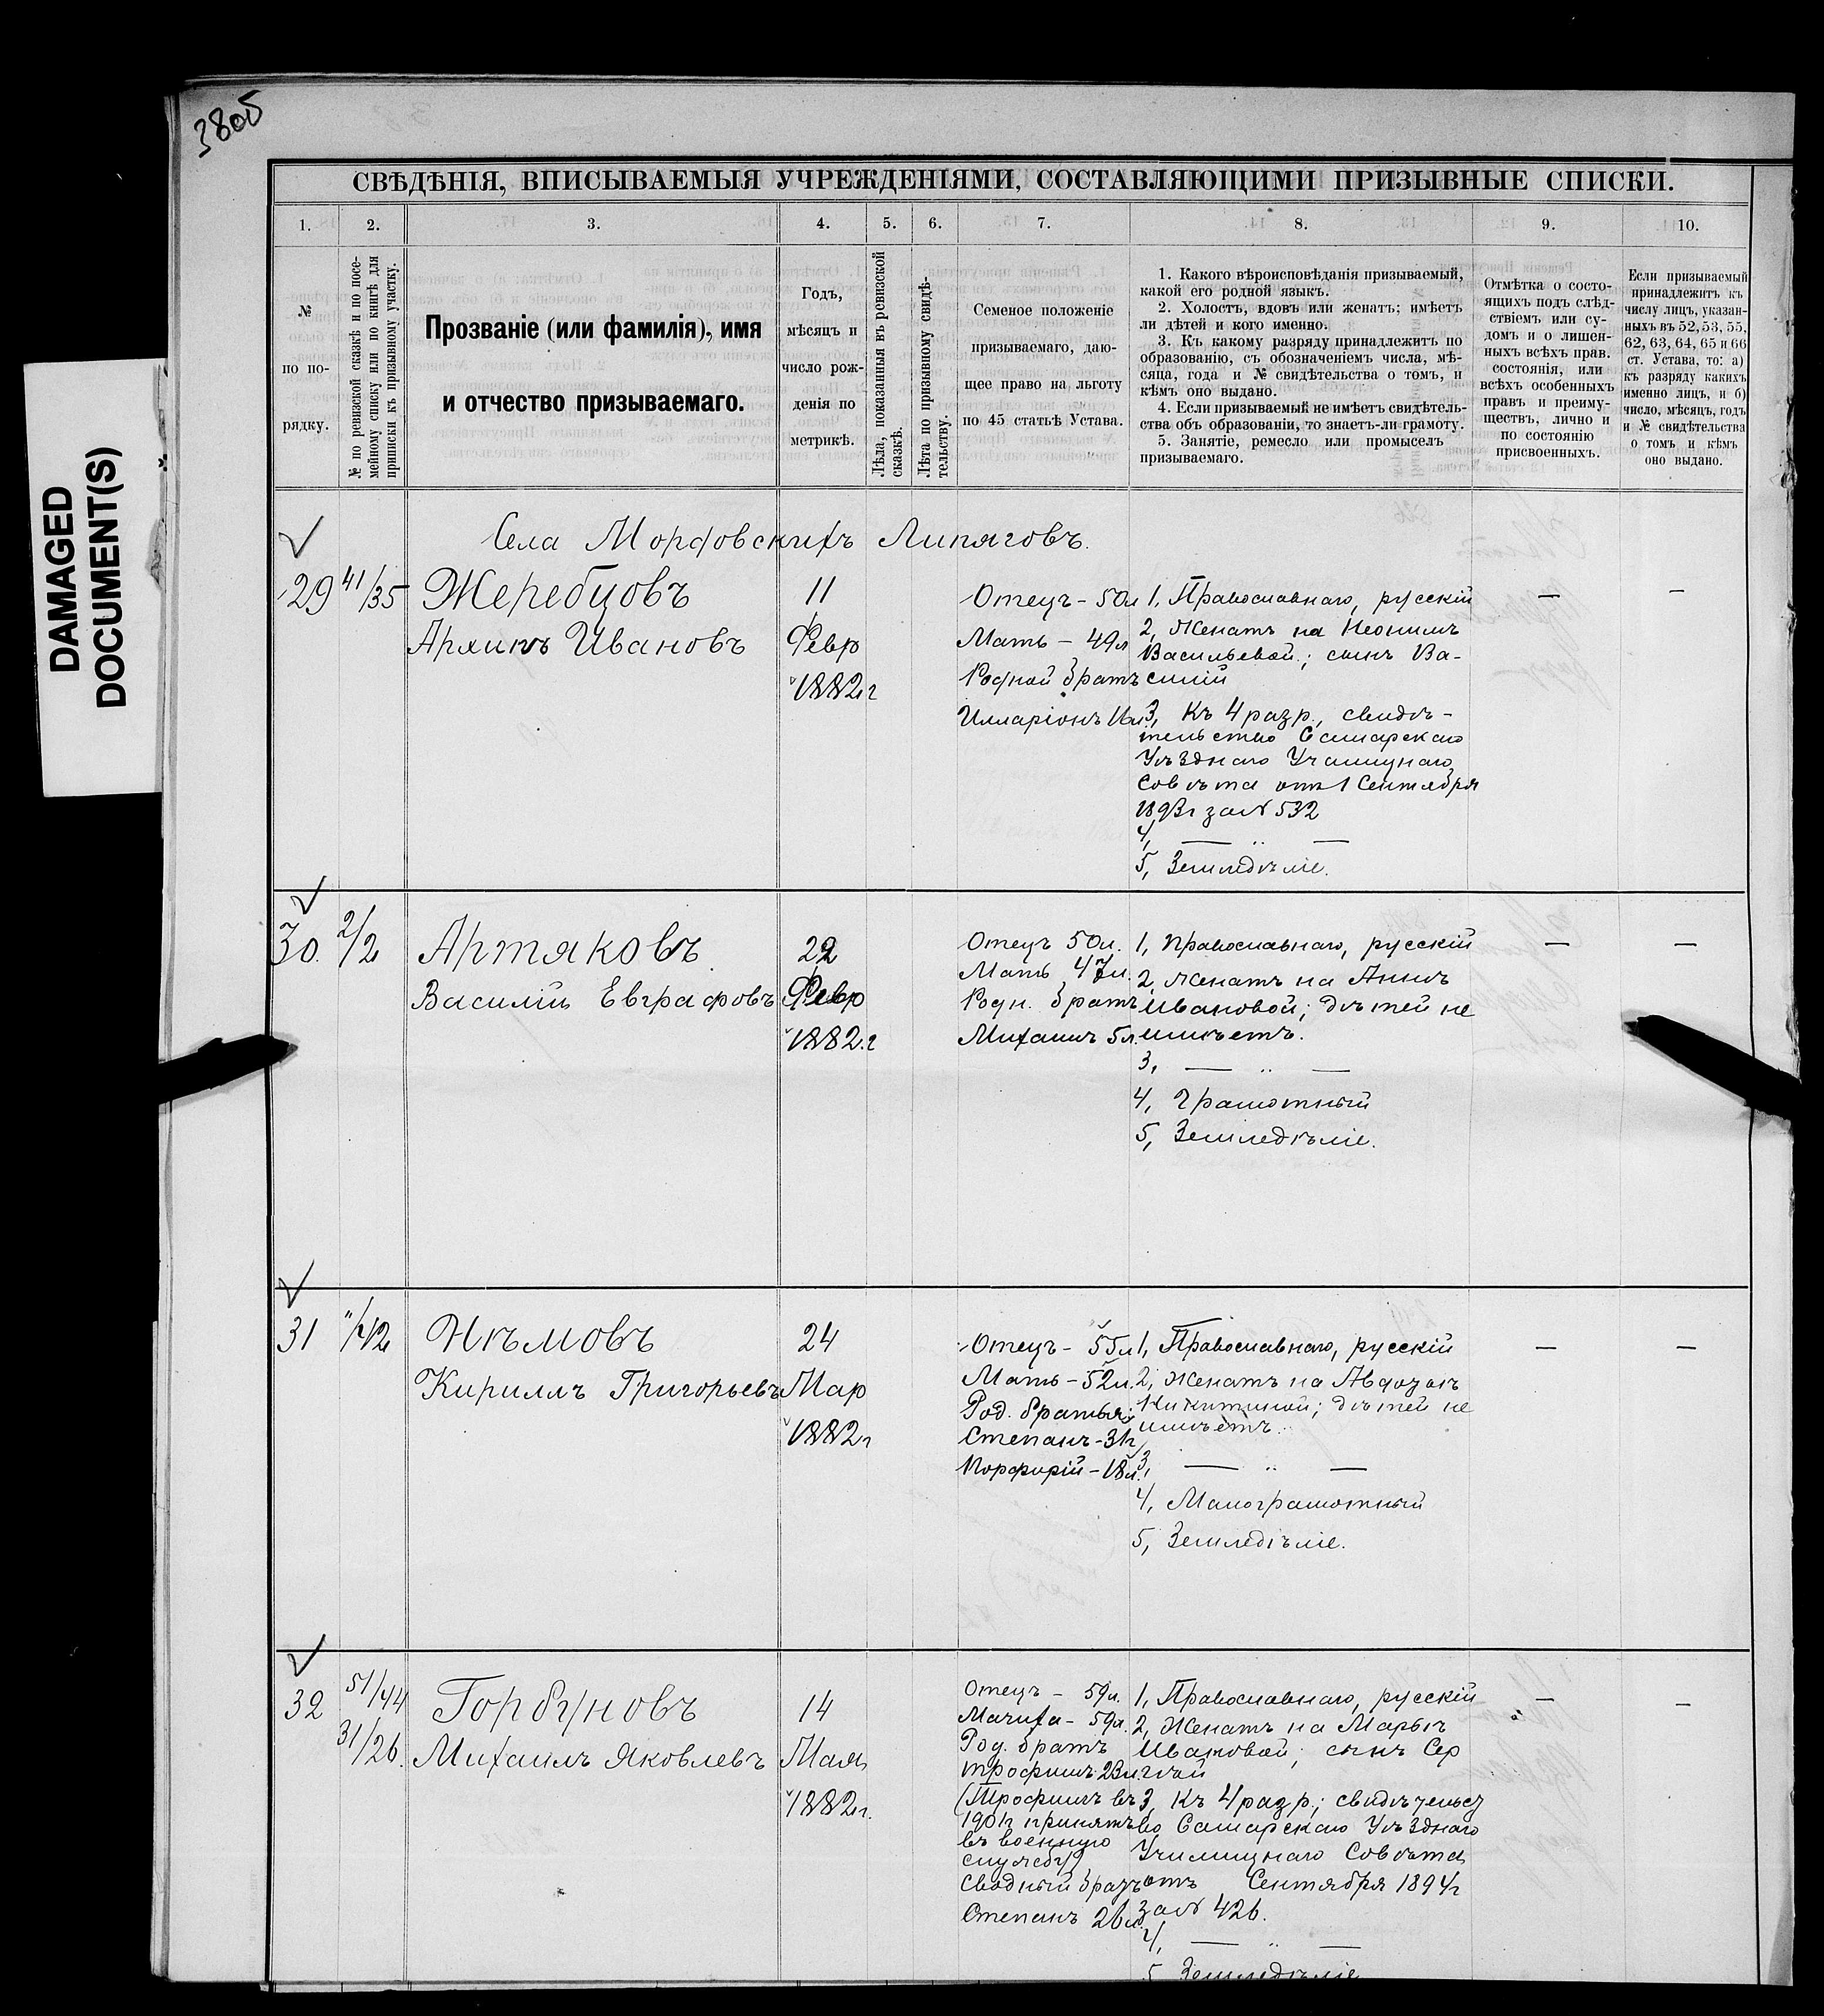 3805
DAMAGED
DOCUMENT(S)
СВѢДѢНІЯ, ВПИСЫВАЕМЫЯ УЧРЕЖДЕНІЯМИ, СОСТАВЛЯЮЩИМИ ПРИЗЫВНЫЕ СПИСКИ.
1. 2. 3. 4. 5. 6. 7. 8. 9. 10.
№
по по-
рядку.
№ по ревизской сказкѣ и по посе-
мейному списку или по книгѣ для
приписки къ призывному участку.
Прозваніе (или фамилія), имя
и отчество призываемаго.
Годъ,
мѣсяцъ и
число рож-
денія по
метрикѣ.
Лѣта, показанныя въ ревизской
сказкѣ.
Лѣта по призывному свидѣ-
тельству.
Семеное положеніе
призываемаго, даю-
щее право на льготу
по 45 статьѣ Устава.
1. Какого вѣроисповѣданія призываемый,
какой его родной языкъ.
2. Холостъ, вдовъ или женатъ; имѣетъ
ли дѣтей и кого именно.
3. Къ какому разряду принадлежитъ по
образованію, съ обозначеніемъ числа, мѣ-
сяца, года и № свидѣтельства о томъ, и
кѣмъ оно выдано.
4. Если призываемый не имѣетъ свидѣтель-
ства объ образованіи, то знаетъ-ли грамоту.
5. Занятіе, ремесло или промыселъ
призываемаго.
Отмѣтка о состо-
ящихъ подъ слѣд-
ствіемъ или су-
домъ и о лишен-
ныхъ всѣхъ прав.
состоянія, или
всѣхъ особенныхъ
правъ и преиму-
ществъ, лично и
по состоянію
присвоенныхъ.
Если призываемый
принадлежитъ къ
числу лицъ, указан-
ныхъ въ 52, 53, 55,
62, 63, 64, 65 и 66
ст. Устава, то: а)
къ разряду какихъ
именно лицъ, и б)
число, мѣсяцъ, годъ
и № свидѣтельства
о томъ и кѣмъ
оно выдано.
Села Мордовскихъ Липяговъ.
29 41/35 Жеребцовъ
Архипъ Ивановъ
11
Февр
1882г
Отецъ - 50л
Мать - 49л
Родной братъ
Илларіонъ 11л.
1, Православнаго, русскій
2, Женатъ на Неонилѣ
Васильевой; сынъ Ва-
силій
3, Къ 4 разр., свидѣ-
тельство Самарскаго
Уѣзднаго Училищнаго
Совѣта отъ 1 Сентября
1893г за № 532
4, — " —
5, Земледѣліе.
— —
30. 2/2 Артяковъ
Василій Евграфовъ
22
Февр
1882.г
Отецъ 50л.
Мать 47л.
Родн. братъ
Михаилъ 5л.
1, Православнаго, русскій
2, Женатъ на Аннѣ
Ивановой; дѣтей не
имѣетъ.
3, — " —
4, Грамотный
5, Земледѣліе.
— —
31 "/42 Нѣмовъ
Кириллъ Григорьевъ
24
Мар
1882г
Отецъ - 55л
Мать - 52л.
Род. братья:
Степанъ - 31г
Порфирій - 18л.
1, Православнаго, русскій
2, Женатъ на Авдотьѣ
Никитиной; дѣтей не
имѣетъ.
3, — " —
4, Малограмотный
5, Земледѣліе.
— —
32 51/44
31/26. Горбуновъ
Михаилъ Яковлевъ
14
Мая
1882г.
Отецъ - 59л.
Мачиха - 59л.
Род. братъ
Трофимъ 23л.
(Трофимъ въ
1901г принятъ
въ военную
службу)
Сводный братъ
Степанъ 26л.
1, Православнаго, русскій
2, Женатъ на Марьѣ
Ивановой; сынъ Сер
гѣй
3, Къ 4 разр.; свидѣтельст
во Самарскаго Уѣзднаго
Училищнаго Совѣта
отъ Сентября 1894г
за № 426.
4, — " —
5, Земледѣліе
— —